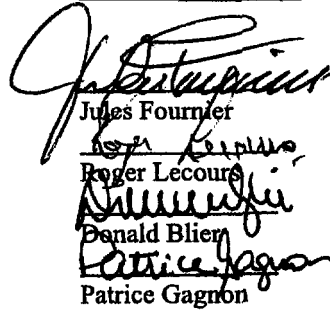 Jules Fournier
Roger Lecours
Roger Lecours
Donald Blier
Patrice Gagnon
Patrice Gagnon